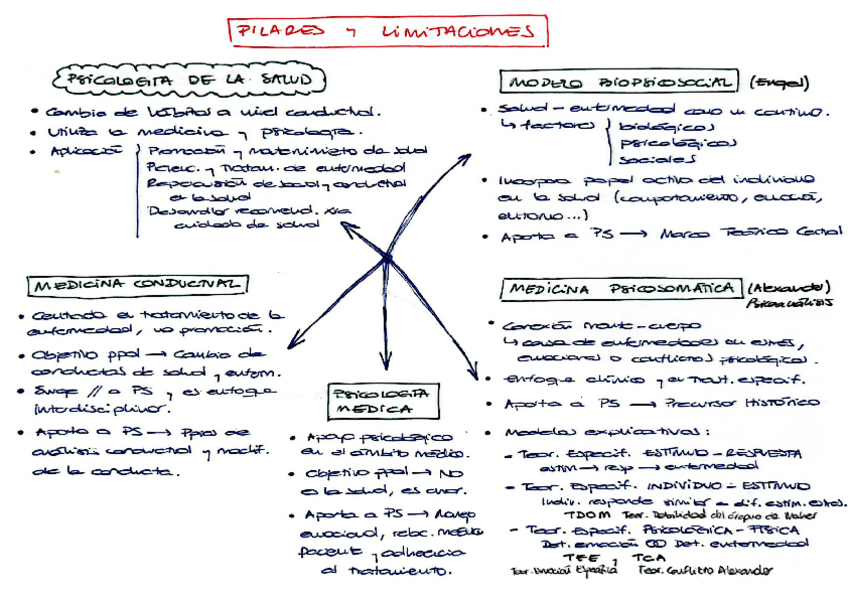 PILARES Y LIMITACIONES
PSICOLOGITA DE LA SALUD
• Cambio de hábitos a nivel conductual.
• Utiliza la medicina y psicología.
• Aplicación
Promoción y mantenimiento de salud
Prevec. y tratam. de enfermedad
Repercusión de salud y conductual
en la salud
Desarrollar recomend. xra
cuidado de salud
MODELO BIOPSICOSOCIAL (Engel)
• Salud - enfermedad como un continuo.
↳ factores
biológicos
psicológicos
sociales
• Incorpora papel activo del individuo
en la salud (comportamiento, emoción,
entorno...)
• Aporta a PS → Marco Teórico Central
MEDICINA CONDUCTUAL
• Centrada en tratamiento de la
enfermedad, no promoción.
• Objetivo ppal → Cambio de
conductas de salud y enferm.
• Surge // a PS y es enfoque
interdisciplinar.
• Aporta a PS → Ppios de
análisis conductual y modif.
de la conducta.
PSICOLOGITA
MEDICA
• Apoyo psicológico
en el ámbito médico.
• Objetivo ppal → NO
es la salud, es curar.
• Aporta a PS → Manejo
emocional, relac. médico
paciente y adherencia
al tratamiento.
MEDICINA PSICOSOMÁTICA (Alexander)
Psicoanálisis
• Conexión mente-cuerpo
↳ causa de enfermedades en estrés,
emociones o conflictos psicológicos.
• Enfoque clínico y en trat. específ.
• Aporta a PS → Precursor Histórico
• Modelos explicativos:
- Teor. Especif. ESTÍMULO - RESPUESTA
estim → resp → enfermedad
- Teor. Especif. INDIVIDUO - ESTÍMULO
Indiv. responde similar a dif. estim. estres.
TDOM Teor. Debilidad del órgano de Maher
- Teor. Especif. PSICOLÓGICA - FÍSICA
Det. emoción Det. enfermedad
TEE y TCA
Teor. Emoción Teor. Conflicto Alexander